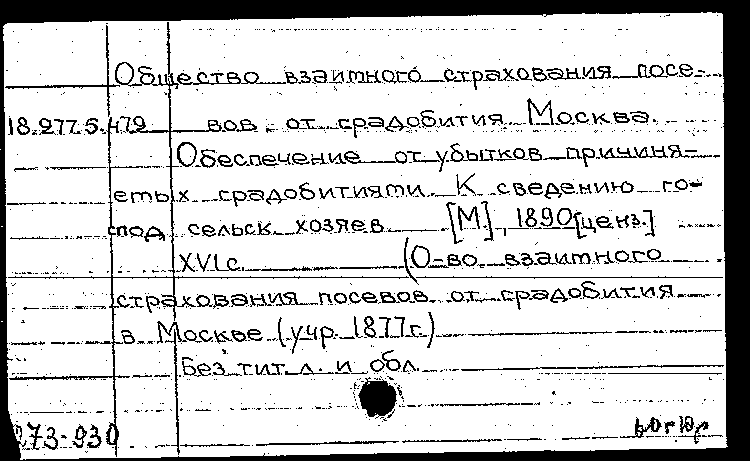 Общество взаимного страхования посе-
18.277.5.479 вов от градобития Москва.
Обеспечение от убытков причиня-
емых градобитиями. К сведению го-
спод сельск. хозяев [М], 1890[ценз.]
XVI с. (О-во взаимного
страхования посевов от градобития
в Москве (учр. 1877г.)
Без тит. л. и обл.
273-930